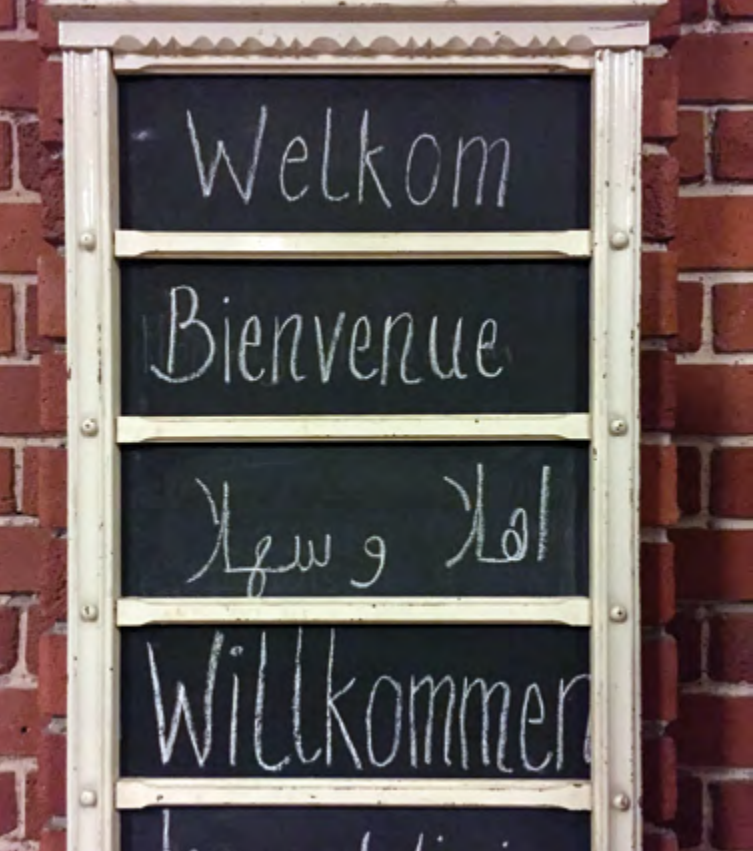 Welkom
Bienvenue
اهلا و سهلا
Willkommen